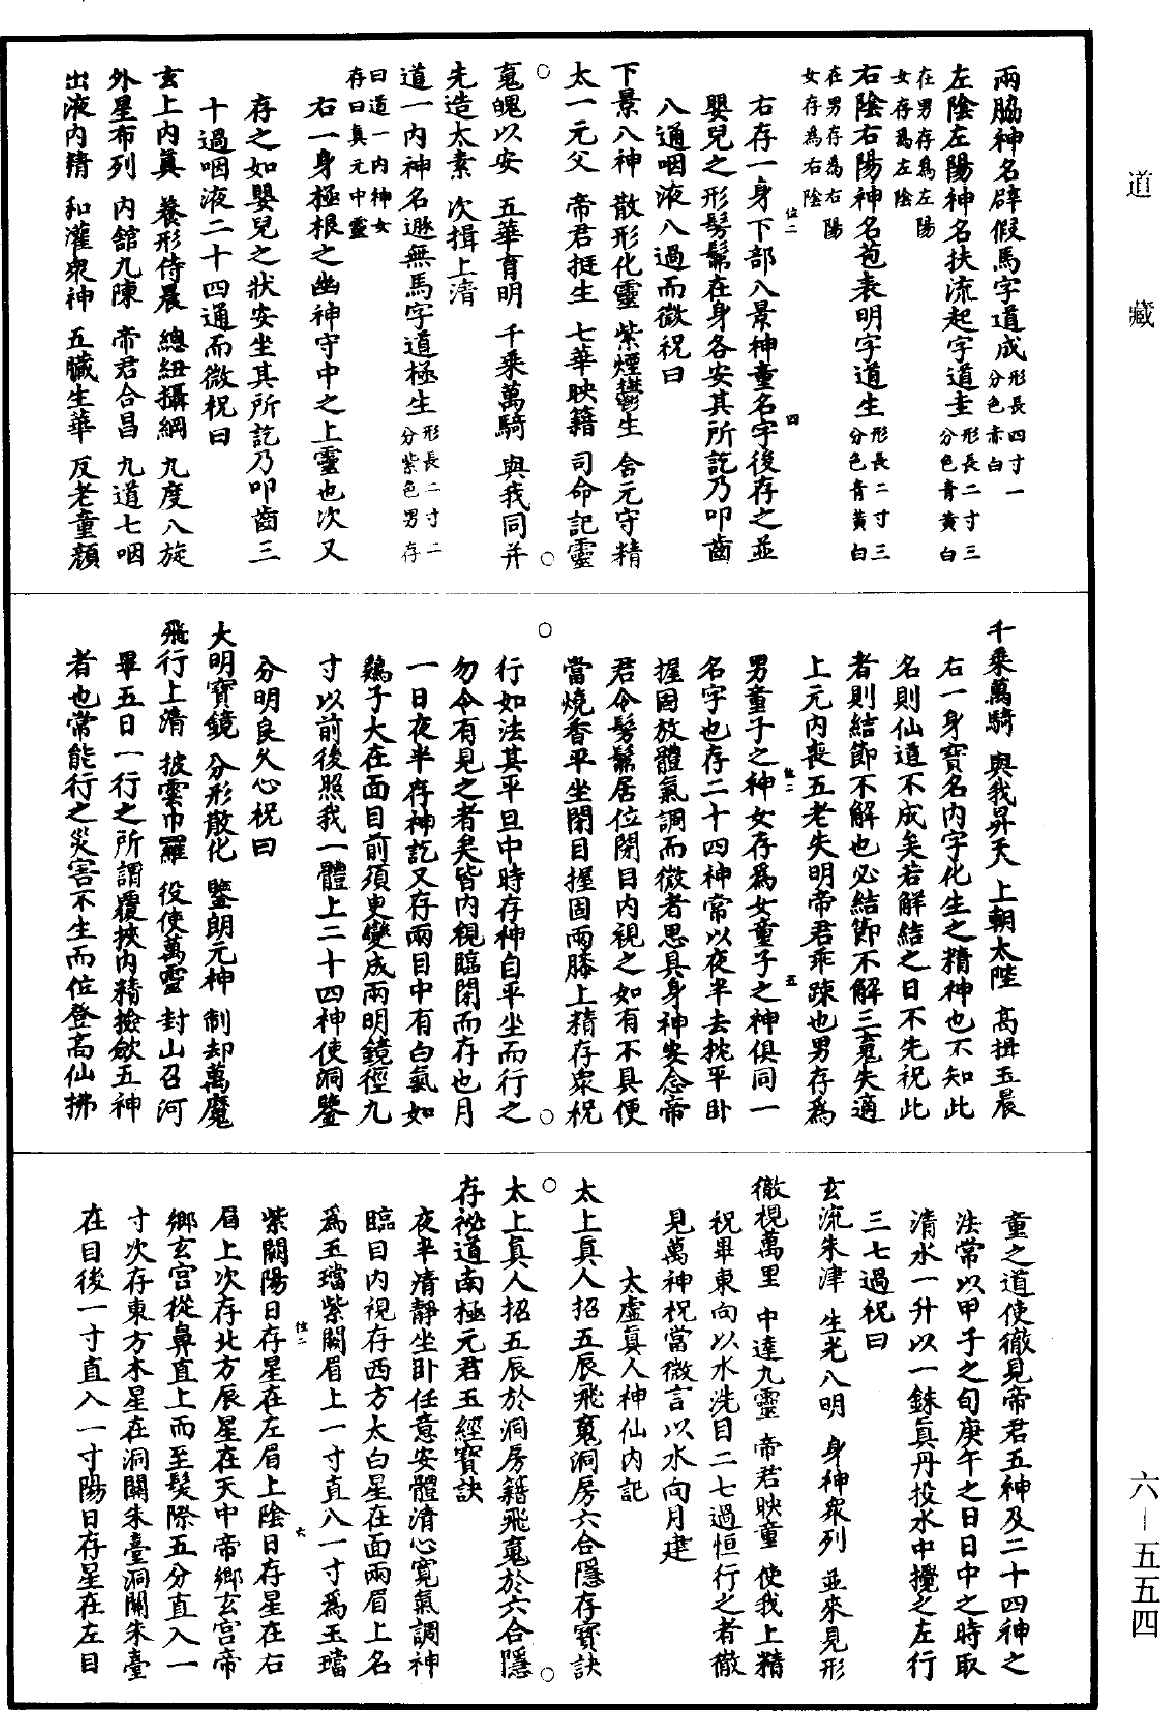 道藏
六—五五四
兩脇神名辟假馬字道成形長四寸一分色赤白
左陰左陽神名扶流起字道圭形長二寸三分色青黃白
在男存為左陽女存為左陰
右陰右陽神名苞表明字道生形長二寸三分色青黃白
在男存為右陽女存為右陰
右存一身下部八景神童名字後存之並
嬰兒之形髣髴在身各安其所訖乃叩齒
八通咽液八過而微祝曰
下景八神 散形化靈 紫煙鬱生 含元守精
太一元父 帝君挺生 七華映籍 司命記靈
䰟魄以安 五華育明 千乘萬騎 與我同并
先造太素 次揖上清
道一內神名遯無馬字道極生形長二寸二分紫色男存
曰道一內神女存曰真元中靈
右一身極根之幽神守中之上靈也次又
存之如嬰兒之狀安坐其所訖乃叩齒三
十過咽液二十四通而微祝曰
玄上內真 養形侍晨 總紐攝綱 九度八旋
外星布列 內舘九陳 帝君合昌 九道七咽
出液內精 和灌眾神 五臟生華 反老童顏
千乘萬騎 與我昇天 上朝太陛 高揖玉晨
右一身寶名內字化生之精神也不知此
名則仙道不成矣若解結之日不先祝此
者則結節不解也必結節不解三䰟失適
上元內喪五老失明帝君乖踈也男存為
男童子之神女存為女童子之神俱同一
名字也存二十四神常以夜半去枕平臥
握固放體氣調而微者思具身神安念帝
君令髣髴居位閉目內視之如有不具便
當燒香平坐閉目握固兩膝上精存眾祝
行如法其平旦中時存神自平坐而行之
勿令有見之者矣皆內視臨閉而存也月
一日夜半存神訖又存兩目中有白氣如
鷄子大在面目前須臾變成兩明鏡徑九
寸以前後照我一體上二十四神使洞鑒
分明良久心祝曰
大明寶鏡 分形散化 鑒朗元神 制却萬魔
飛行上清 披雲巾羅 役使萬靈 封山召河
畢五日一行之所謂覆挾內精撿歛五神
者也常能行之災害不生而位登高仙拂
童之道使徹見帝君五神及二十四神之
法常以甲子之旬庚午之日日中之時取
清水一升以一銖真丹投水中攪之左行
三七過祝曰
玄流朱津 生光八明 身神眾列 並來見形
徹視萬里 中達九靈 帝君映童 使我上精
祝畢東向以水洗目二七過恒行之者徹
見萬神祝當微言以水向月建
太虛真人神仙內記
太上真人招五辰飛䰟洞房六合隱存寶訣
太上真人招五辰於洞房籍飛䰟於六合隱
存祕道南極元君玉經寶訣
夜半清靜坐卧任意安體清心寬氣調神
臨目內視存西方太白星在面兩眉上名
為玉璫紫闕眉上一寸直入一寸為玉璫
紫闕陽日存星在左眉上陰日存星在右
眉上次存北方辰星在天中帝鄉玄宮帝
鄉玄宮從鼻直上而至髮際五分直入一
寸次存東方木星在洞闕朱臺洞闕朱臺
在目後一寸直入一寸陽日存星在左目